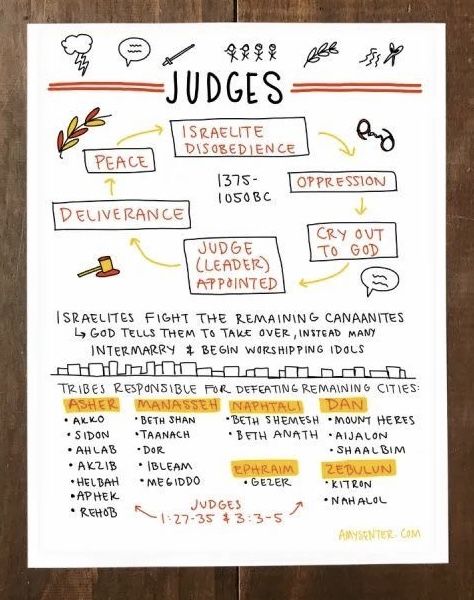 JUDGES
ISRAELITE
DISOBEDIENCE
PEACE
1375-
1050BC
OPPRESSION
DELIVERANCE
CRY OUT
TO GOD
JUDGE
(LEADER)
APPOINTED
ISRAELITES FIGHT THE REMAINING CANAANITES
↳ GOD TELLS THEM TO TAKE OVER, INSTEAD MANY
INTERMARRY & BEGIN WORSHIPPING IDOLS
TRIBES RESPONSIBLE FOR DEFEATING REMAINING CITIES:
ASHER
• AKKO
• SIDON
• AHLAB
• AKZIB
• HELBAH
• APHEK
• REHOB
MANASSEH
• BETH SHAN
• TAANACH
• DOR
• IBLEAM
• MEGIDDO
NAPHTALI
• BETH SHEMESH
• BETH ANATH
EPHRAIM
• GEZER
DAN
• MOUNT HERES
• AIJALON
• SHAALBIM
ZEBULUN
• KITRON
• NAHALOL
JUDGES
1:27-35 & 3:3-5
AMYSENTER.COM